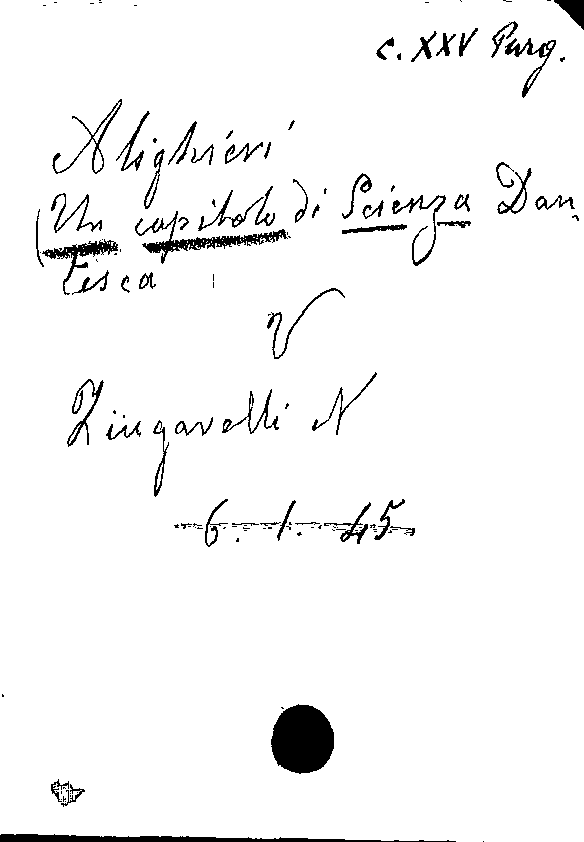 c. XXV Purg.
Alighieri
(Un capitolo di Scienza Dan
tesca
V
Zingarelli N
6. 1. 45